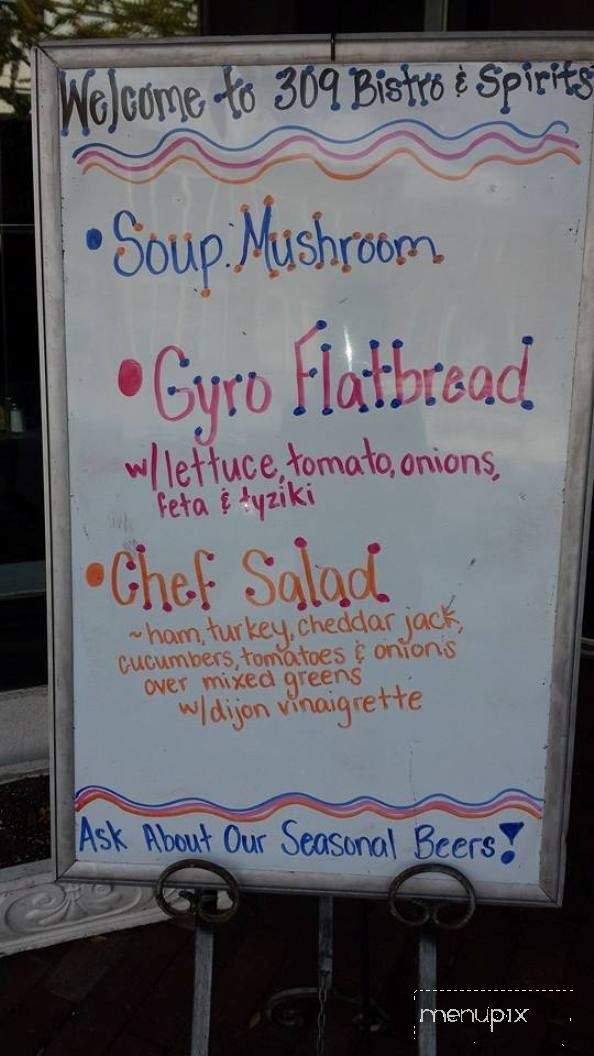 Welcome to 309 Bistro & Spirits
• Soup: Mushroom
• Gyro Flatbread
w/lettuce, tomato, onions,
feta & tyziki
• Chef Salad
~ham, turkey, cheddar jack,
cucumbers, tomatoes & onions
over mixed greens
w/dijon vinaigrette
Ask About Our Seasonal Beers!
menupix